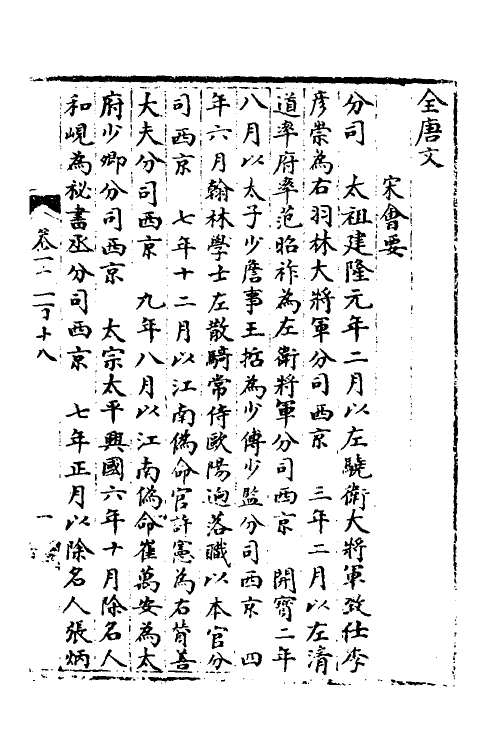 全唐文
宋會要
分司　太祖建隆元年二月以左驍衛大將軍致仕李
彥崇為右羽林大將軍分司西京　三年二月以左清
道率府率范昭祚為左衛將軍分司西京　開寶二年
八月以太子少詹事王㧑為少傅少監分司西京　四
年六月翰林學士左散騎常侍歐陽逈落職以本官分
司西京　七年十二月以江南偽命官許憲為右贊善
大夫分司西京　九年八月以江南偽命崔萬安為太
府少卿分司西京　太宗太平興國六年十月除名人
和峴為秘書丞分司西京　七年正月以除名人張炳
一